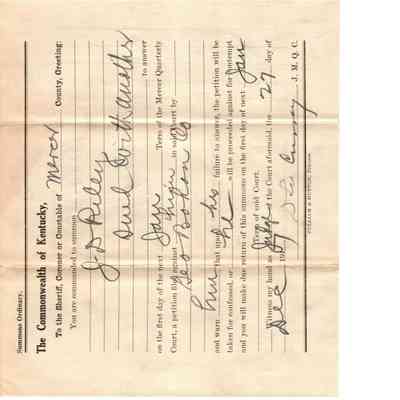 Summons Ordinary.
The Commonwealth of Kentucky,
To the Sheriff, Coroner or Constable of Mercer County, Greeting:
You are commanded to summon
J D Riley
and
to answer
on the first day of the next Jany Term of the Mercer Quarterly
Court, a petition filed against him in said Court by
Geo Bohon Co
and warn him that upon his failure to answer, the petition will be
taken for confessed, or he will be proceeded against for contempt
and you will make due return of this summons on the first day of next Jan
Term of said Court.
Witness my hand as Judge of the Court aforesaid, the 27 day of
Dec 190
J. M. Q. C.